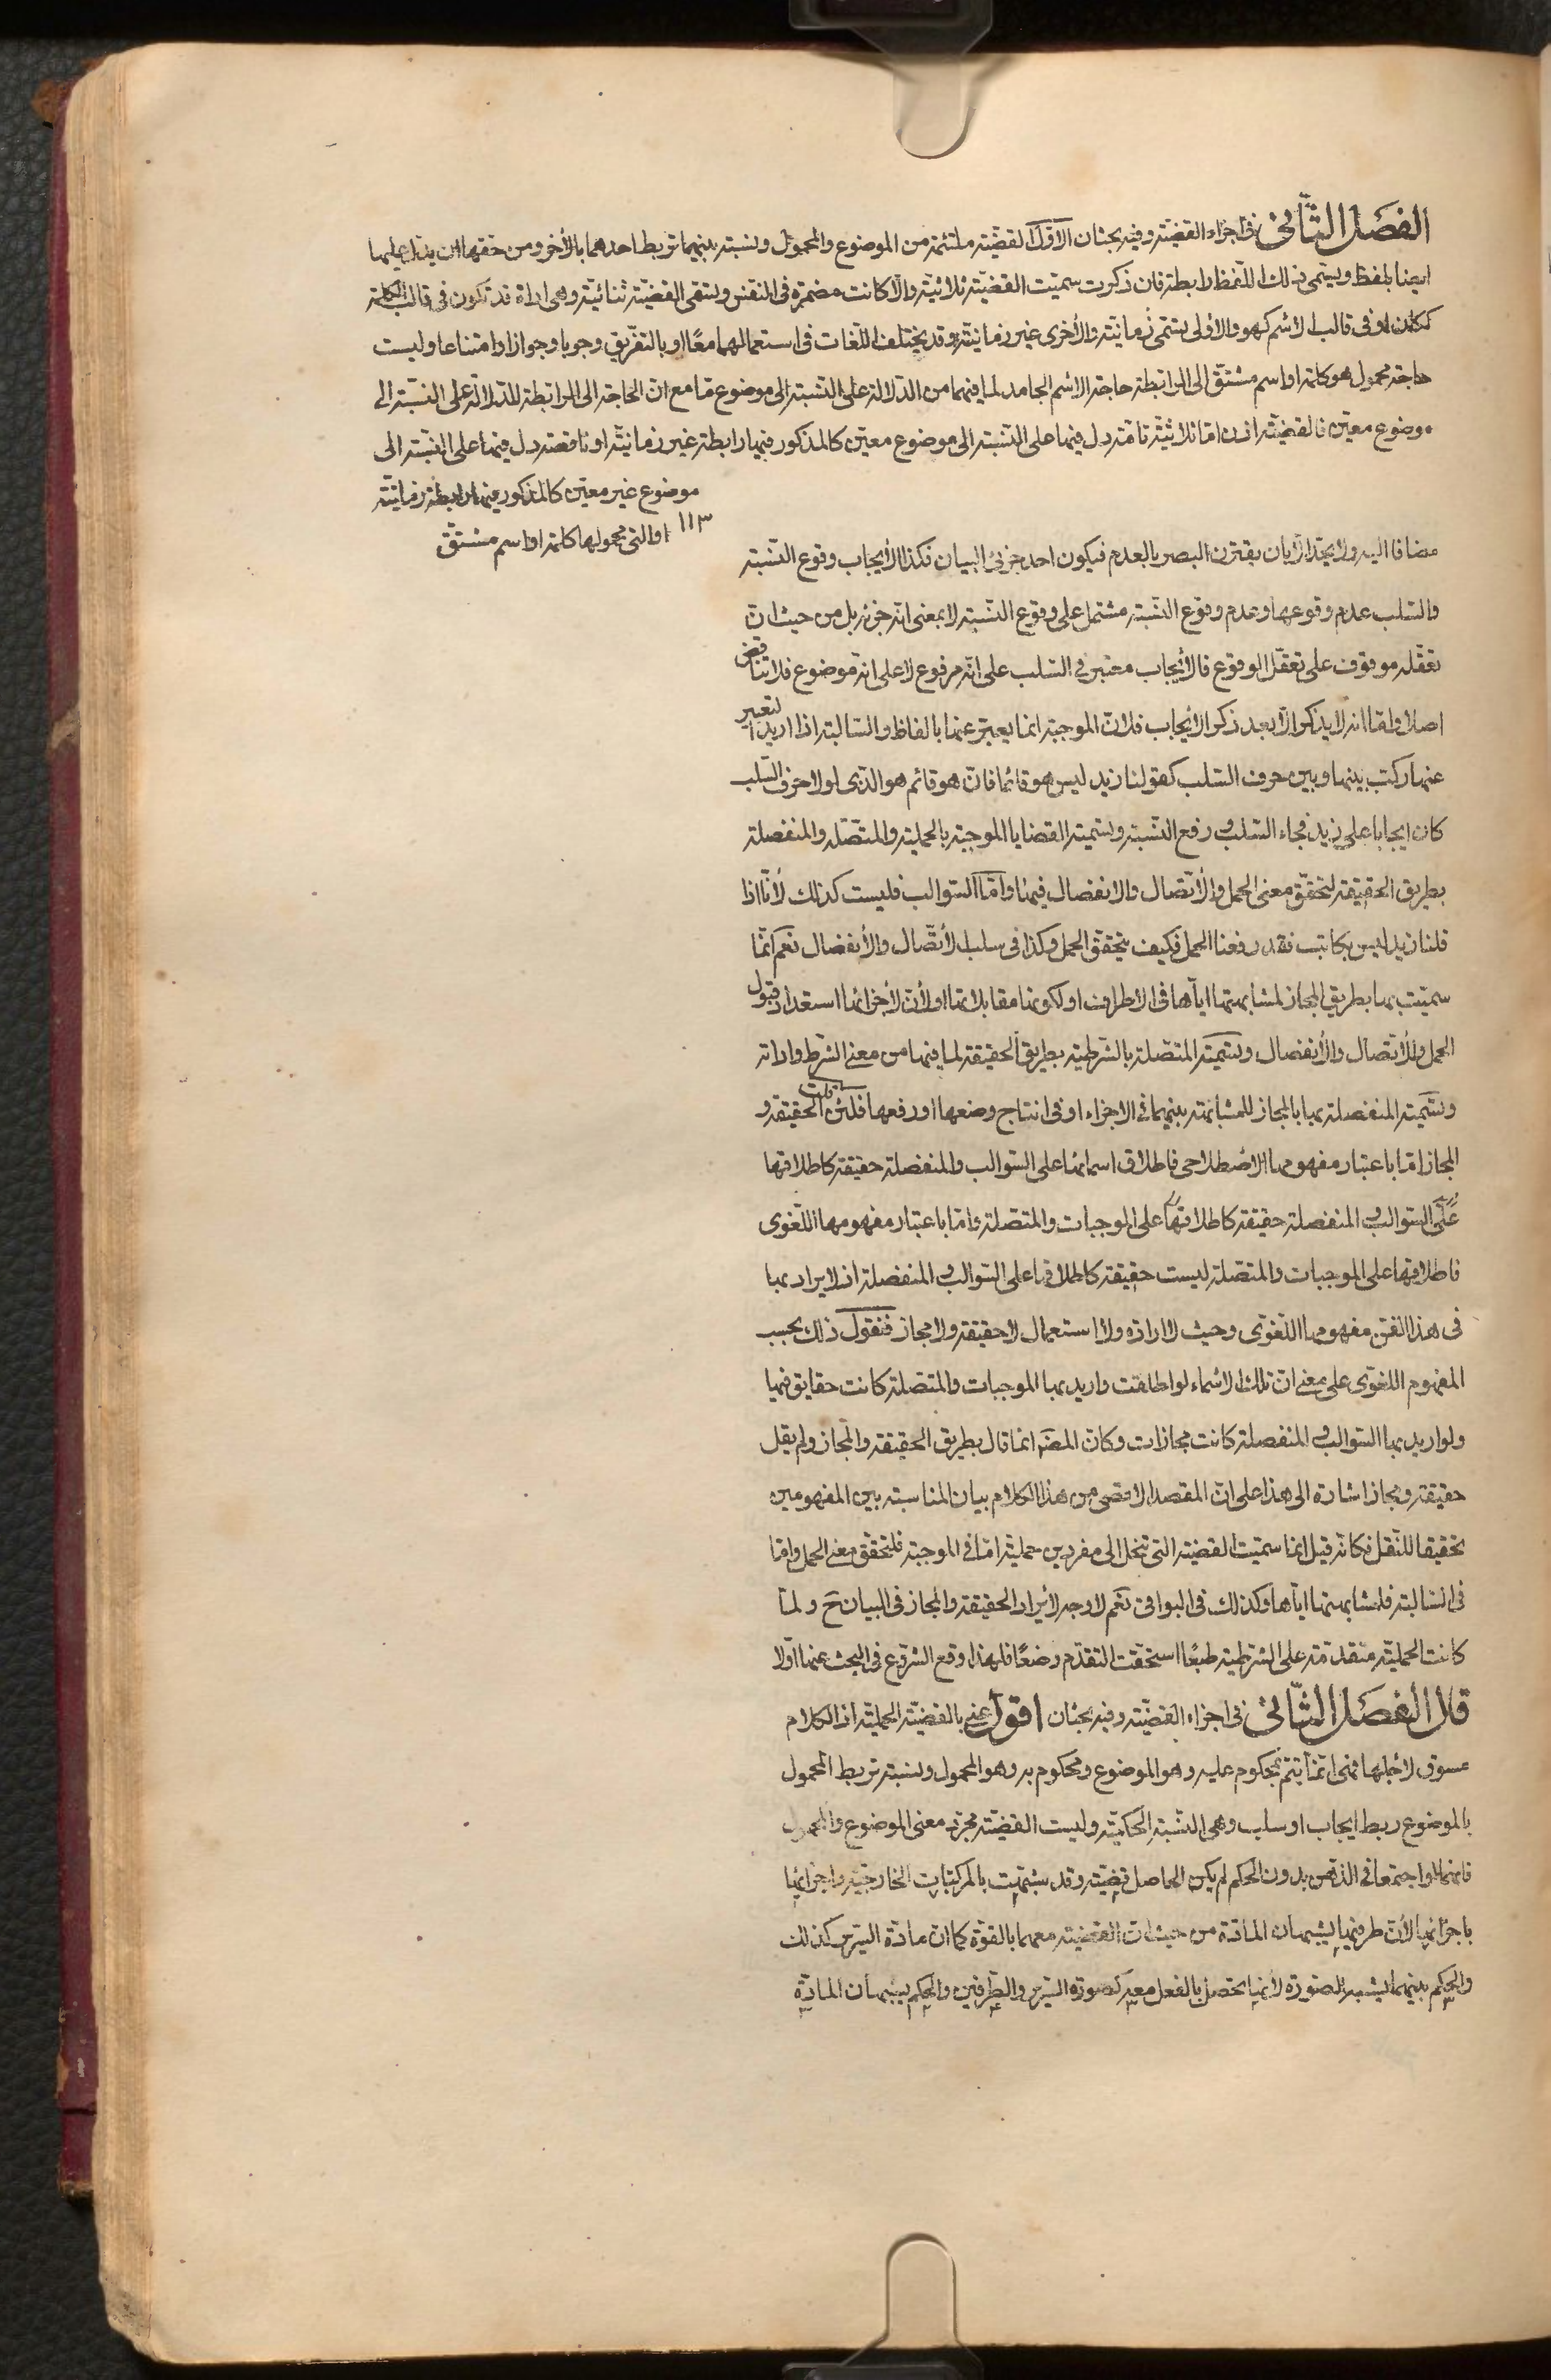 الفصل الثاني في اجزاء القضية وفيه بحثان الاول القضية ملتئمة من الموضوع والمحمول ونسبة بينهما تربط احدهما بالآخر ومن حقها ان يدل عليها
ايضا بلفظ ويسمى ذلك اللفظ رابطة فان ذكرت سميت القضية ثلاثية والا كانت مضمرة في النفس وتسمى القضية ثنائية وهي اداة قد تكون في قالب الكلمة
ككان او في قالب الاسم كهو والاولى تسمى زمانية والاخرى غير زمانية وقد يختلف اللغات في استعمالهما معًا او بالتفريق وجوبا وجوازا وامتناعا وليست
حاجة محمول هو كلمة او اسم مشتق الى الرابطة حاجة الاسم الجامد لما فيهما من الدلالة على النسبة الى موضوع ما مع ان الحاجة الى الرابطة للدلالة على النسبة الى
موضوع معين فالقضية اذن اما ثلاثية تامة دل فيها على النسبة الى موضوع معين كالمذكور فيها رابطة غير زمانية او ناقصة دل فيها على النسبة الى
موضوع غير معين كالمذكور فيها رابطة زمانية
او التي محمولها كلمة او اسم مشتق
١١٣
مضافا اليه ولا يحد الا بان يقترن البصر بالعدم فيكون احد جزئي البيان فكذا الايجاب وقوع النسبة
والسلب عدم وقوعها وعدم وقوع النسبة مشتمل على وقوع النسبة لا بمعنى انه جزئه بل من حيث ان
تعقله موقوف على تعقل الوقوع فالايجاب معتبر في السلب على انه مرفوع لا على انه موضوع فلا تناقض
اصلا واما انه لا يذكر الا بعد ذكر الايجاب فلان الموجبة انما يعبر عنها بالفاظ والسالبة اذا اريد التعبير
عنها ركب بينها وبين حرف السلب كقولنا زيد ليس هو قائما فان هو قائم هو الذي لولا حرف السلب
كان ايجابا على زيد فجاء السلب في رفع النسبة وتسمية القضايا الموجبة بالحملية والمتصلة والمنفصلة
بطريق الحقيقة لتحقق معنى الحمل والاتصال والانفصال فيها واما السوالب فليست كذلك لانا اذا
قلنا زيد ليس بكاتب فقد رفعنا الحمل فكيف يتحقق الحمل وكذا في سلب الاتصال والانفصال نعم انما
سميت بها بطريق المجاز لمشابهتها اياها في الاطراف او لكونها مقابلاتها او لان لاجزائها استعداد قبول
الحمل والاتصال والانفصال وتسمية المتصلة بالشرطية بطريق الحقيقة لما فيها من معنى الشرط واداته
وتسمية المنفصلة بها بالمجاز للمشابهة بينهما في الاجزاء او في انتاج وضعها او رفعها فلئن قلت الحقيقة و
المجاز اما باعتبار مفهومها الاصطلاحي فاطلاق اسمائها على السوالب والمنفصلة حقيقة كاطلاقها
على السوالب والمنفصلة حقيقة كاطلاقها على الموجبات والمتصلة واما باعتبار مفهومها اللغوي
فاطلاقها على الموجبات والمتصلة ليست حقيقة كاطلاقها على السوالب والمنفصلة اذ لا يراد بها
في هذا الفن مفهومها اللغوي وحيث لا ارادة ولا استعمال لا حقيقة ولا مجاز فنقول ذلك بحسب
المفهوم اللغوي على معنى ان تلك الاسماء لو اطلقت واريد بها الموجبات والمتصلة كانت حقايق فيها
ولو اريد بها السوالب والمنفصلة كانت مجازات وكان المصـ انما قال بطريق الحقيقة والمجاز ولم يقل
حقيقة ومجاز اشارة الى هذا على ان المقصد الاقصى من هذا الكلام بيان المناسبة بين المفهومين
تحقيقا للنقل فكانه قيل انما سميت القضية التي تنحل الى مفردين حملية اما في الموجبة فلتحقق معنى الحمل واما
في السالبة فلمشابهتها اياها وكذلك في البواقي نعم لا وجه لايراد الحقيقة والمجاز في البيان ح ولما
كانت الحملية متقدمة على الشرطية طبعًا استحقت التقدم وضعًا فلهذا وقع الشروع في البحث عنها اولا
قال الفصل الثاني في اجزاء القضية وفيه بحثان اقول عنى بالقضية الحملية اذ الكلام
مسوق لاجلها فهي انما يتم بمحكوم عليه وهو الموضوع ومحكوم به وهو المحمول ونسبة تربط المحمول
بالموضوع ربط ايجاب او سلب وهي النسبة الحكمية وليست القضية مجرد معنى الموضوع والمحمول
فانهما لو اجتمعا في الذهن بدون الحكم لم يكن الحاصل قضية وقد شبهت بالمركبات الخارجية واجزائها
باجزائها لان طرفيها يشبهان المادة من حيث ان القضية معهما بالقوة كما ان مادة السرير كذلك
والحكم بينهما يشبه الصورة لانها تحصل بالفعل معه كصورة السرير والطرفين والحكم يشبهان المادة